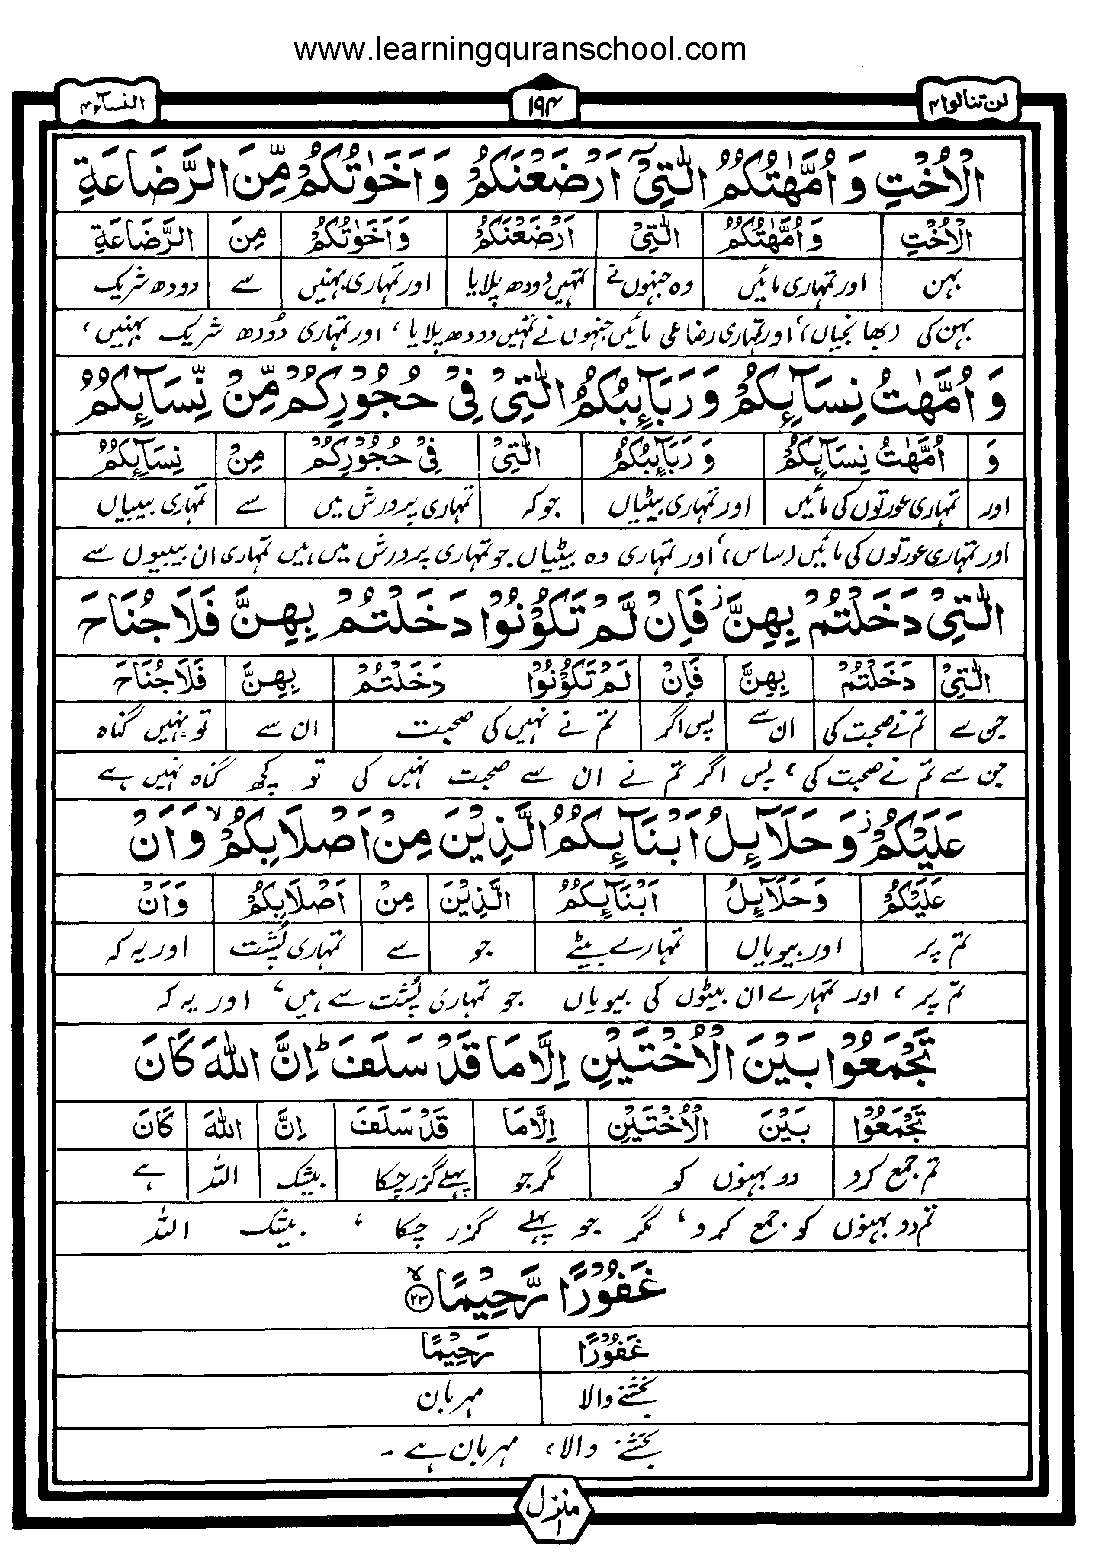 www.learningquranschool.com
لن تنالوا ۴ ۱۹۴ النسآء ۴
الْاُخْتِ وَاُمَّهٰتُكُمُ الّٰتِیْۤ اَرْضَعْنَكُمْ وَاَخَوٰتُكُمْ مِّنَ الرَّضَاعَةِ
الْاُخْتِ وَاُمَّهٰتُكُمُ الّٰتِیْ اَرْضَعْنَكُمْ وَاَخَوٰتُكُمْ مِنَ الرَّضَاعَةِ
بہن اور تمہاری مائیں وہ جنہوں نے تمہیں دودھ پلایا اور تمہاری بہنیں سے دودھ شریک
بہن کی (بھانجیاں)، اور تمہاری رضاعی مائیں جنہوں نے تمہیں دودھ پلایا، اور تمہاری دُودھ شریک بہنیں،
وَ اُمَّهٰتُ نِسَآئِكُمْ وَرَبَآئِبُكُمُ الّٰتِیْ فِیْ حُجُوْرِكُمْ مِّنْ نِّسَآئِكُمُ
وَ اُمَّهٰتُ نِسَآئِكُمْ وَرَبَآئِبُكُمُ الّٰتِیْ فِیْ حُجُوْرِكُمْ مِنْ نِسَآئِكُمُ
اور تمہاری عورتوں کی مائیں اور تمہاری بیٹیاں جو کہ تمہاری پرورش میں سے تمہاری بیبیاں
اور تمہاری عورتوں کی مائیں (ساس)، اور تمہاری وہ بیٹیاں جو تمہاری پرورش میں ہیں تمہاری ان بیبیوں سے
الّٰتِیْ دَخَلْتُمْ بِهِنَّ ز فَاِنْ لَّمْ تَكُوْنُوْا دَخَلْتُمْ بِهِنَّ فَلَا جُنَاحَ
الّٰتِیْ دَخَلْتُمْ بِهِنَّ فَاِنْ لَمْ تَكُوْنُوْا دَخَلْتُمْ بِهِنَّ فَلَا جُنَاحَ
جن سے تم نے صحبت کی ان سے پس اگر تم نے نہیں کی صحبت ان سے تو نہیں گناہ
جن سے تم نے صحبت کی، پس اگر تم نے ان سے صحبت نہیں کی تو کچھ گناہ نہیں ہے
عَلَیْكُمْ ز وَحَلَآئِلُ اَبْنَآئِكُمُ الَّذِیْنَ مِنْ اَصْلَابِكُمْ ۙ وَاَنْ
عَلَیْكُمْ وَحَلَآئِلُ اَبْنَآئِكُمُ الَّذِیْنَ مِنْ اَصْلَابِكُمْ وَاَنْ
تم پر اور بیویاں تمہارے بیٹے جو سے تمہاری پُشت اور یہ کہ
تم پر، اور تمہارے ان بیٹوں کی بیویاں جو تمہاری پُشت سے ہیں، اور یہ کہ
تَجْمَعُوْا بَیْنَ الْاُخْتَیْنِ اِلَّا مَا قَدْ سَلَفَ ؕ اِنَّ اللّٰهَ كَانَ
تَجْمَعُوْا بَیْنَ الْاُخْتَیْنِ اِلَّا مَا قَدْ سَلَفَ اِنَّ اللّٰهَ كَانَ
تم جمع کرو دو بہنوں کو مگر جو پہلے گزر چکا بیشک اللہ ہے
تم دو بہنوں کو جمع کرو، مگر جو پہلے گزر چکا، بیشک اللہ
غَفُوْرًا رَّحِیْمًا ۙ ۲۳
غَفُوْرًا رَحِیْمًا
بخشنے والا مہربان
بخشنے والا، مہربان ہے ۔
منزل ۱